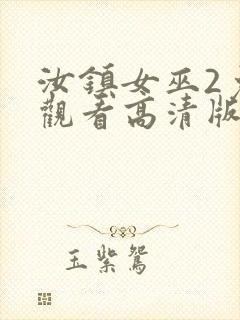 汝鎮女巫2
觀看高清版
玉紫鴛